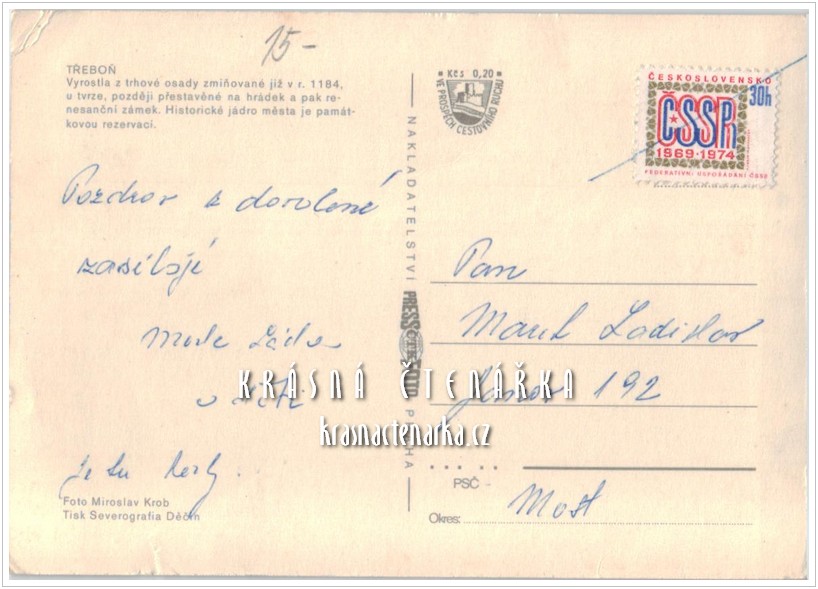 15-
TŘEBOŇ
Vyrostla z trhové osady zmiňované již v r. 1184,
u tvrze, později přestavěné na hrádek a pak re-
nesanční zámek. Historické jádro města je památ-
kovou rezervací.
Kčs 0,20
VE PROSPĚCH CESTOVNÍHO RUCHU
ČESKOSLOVENSKO
30h
ČSSR
1969·1974
FEDERATIVNÍ USPOŘÁDÁNÍ ČSSR
Pozdrav z dovolené
zasílají
Láďa
a děti
Je tu
NAKLADATELSTVÍ PRESSFOTO PRAHA
Pan
Marek Ladislav
Janov 192
PSČ -
Okres: Most
KRÁSNÁ ČTENÁŘKA
krasnactenarka.cz
Foto Miroslav Krob
Tisk Severografia Děčín